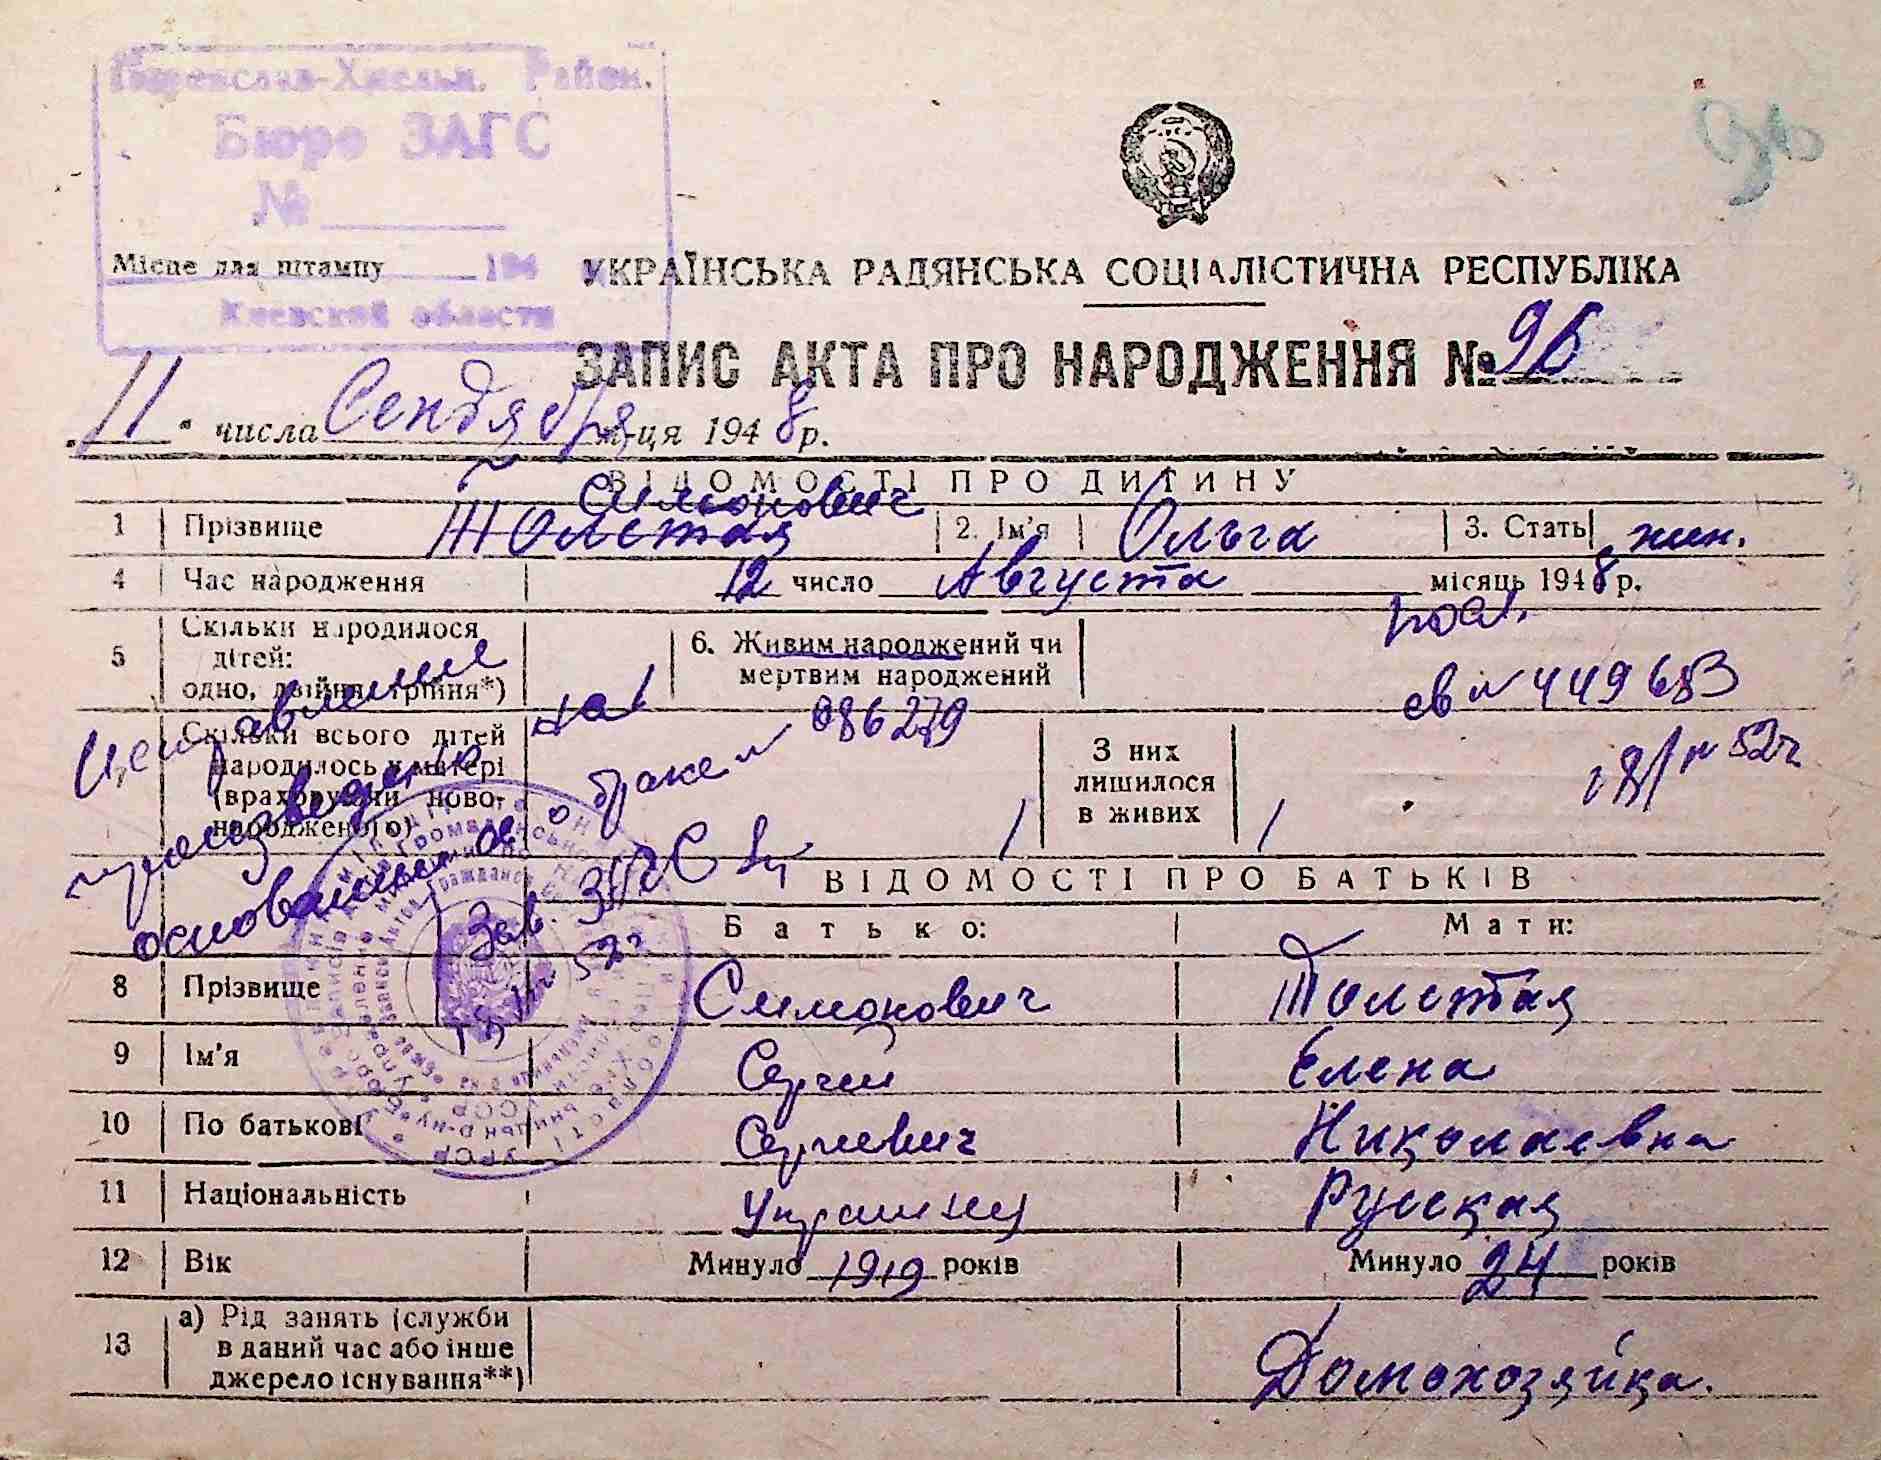 Район.
Бюро ЗАГС
№
Місце для штампу 194
Киевской области
УКРАЇНСЬКА РАДЯНСЬКА СОЦІАЛІСТИЧНА РЕСПУБЛІКА
ЗАПИС АКТА ПРО НАРОДЖЕННЯ № 96
„11" числа Сентября м-ця 1948 р.
ВІДОМОСТІ ПРО ДИТИНУ
Симонович
1 Прізвище Толстая 2. Ім'я Ольга 3. Стать жин.
4 Час народження 12 число Августа місяць 1948 р.
5 Скільки народилося дітей: одно, двійня, трійня*)
6. Живим народжений чи мертвим народжений
св № 449683
Скільки всього дітей народилось у матері (враховуючи новонародженого) 1
З них лишилося в живих 1
Исправление
произведено на
основании св. о браке № 086279
Зав. ЗАГС
ВІДОМОСТІ ПРО БАТЬКІВ
Батько: Мати:
8 Прізвище Симонович Толстая
9 Ім'я Сергей Елена
10 По батькові Сергиевич Николаевна
11 Національність Украинец Русская
12 Вік Минуло 1919 років Минуло 24 років
13 а) Рід занять (служби
в даний час або інше
джерело існування**) Домохозяйка.